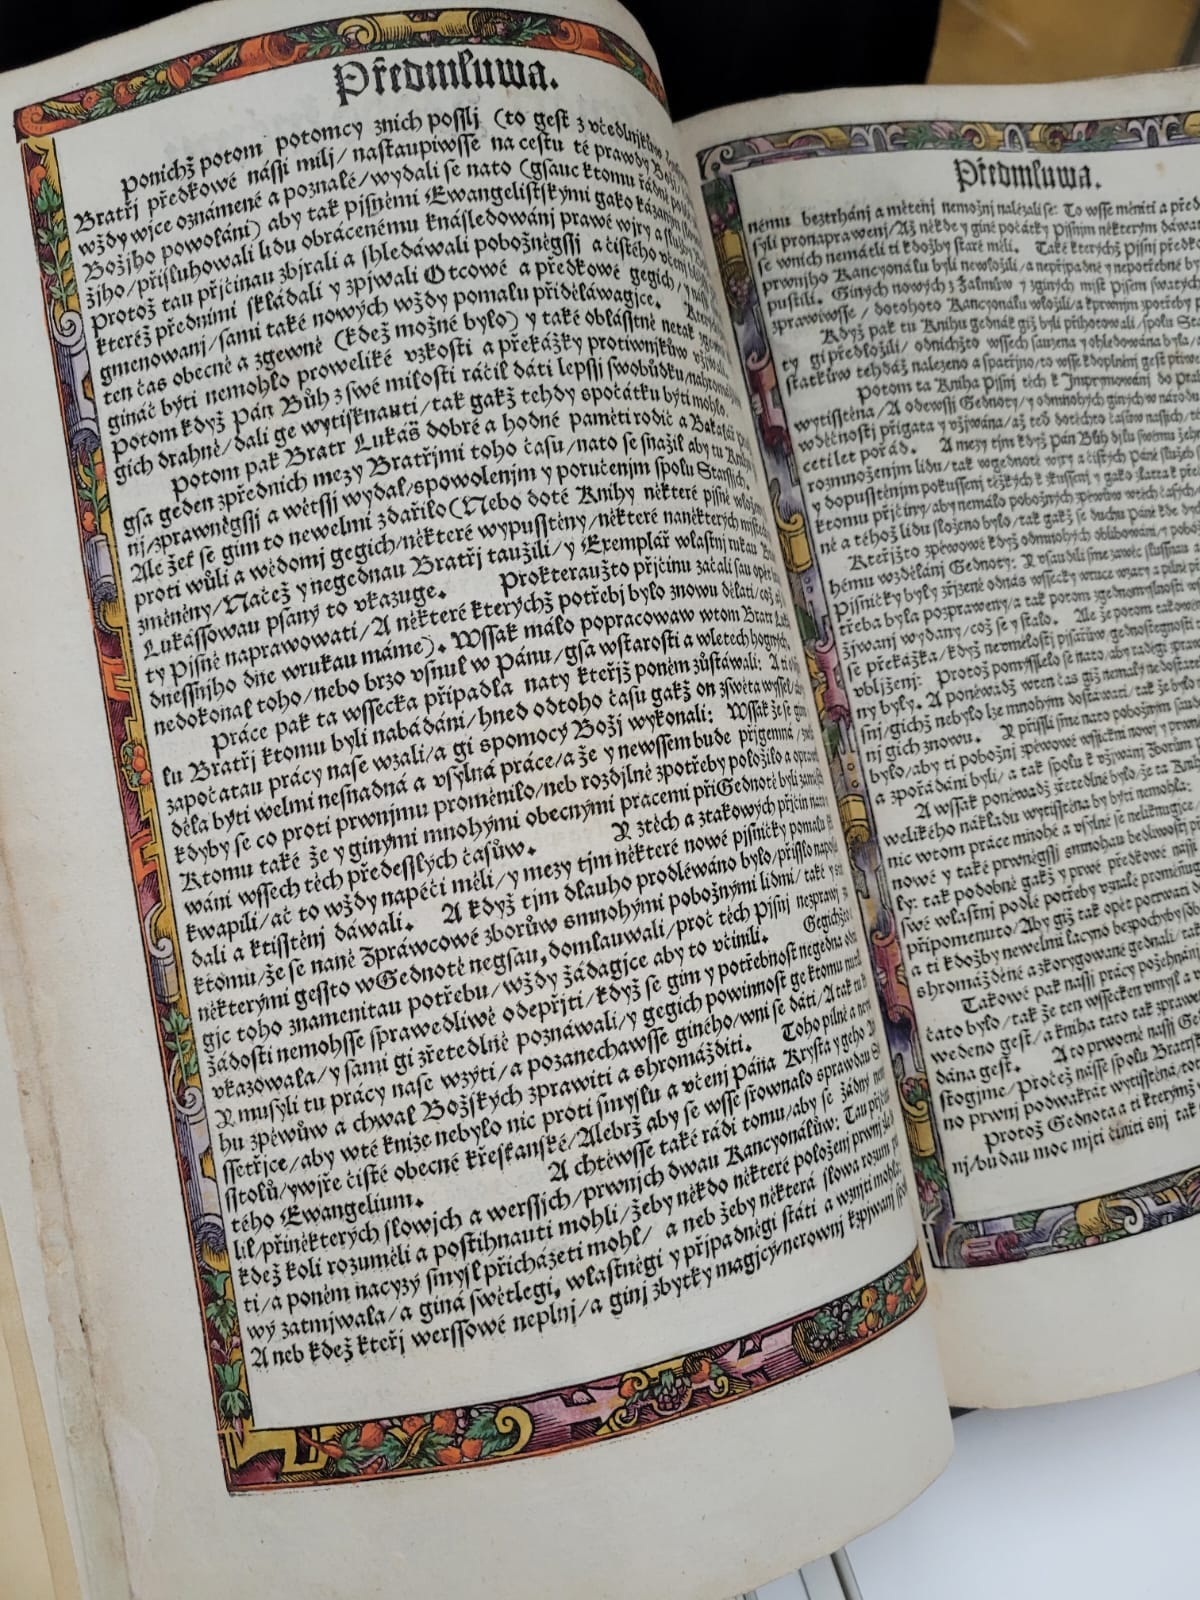 Předmluwa.
Ponichž potom potomcy znich possli (to gest z včedlnjkůw
Bratřj předkowé nássi milj / nastaupiwsse na cestu té prawdy Božj
wždy wjce oznámené a poznalé / wydali se nato (gsauc ktomu řádně
Božjho powolánj) aby tak pjsněmi Ewangelistskými gako kázanjm
žjho / přisluhowali lidu obrácenému knásledowánj prawé wjry a
Protož tau přjčinau zbjrali a shledáwali pobožněgssj a čistého včenj
kteréž předními skládali y zpjwali Otcowé a předkowé gegich / y
gmenowanj / sami také nowých wždy pomalu přiděláwagjce.
ten čas obecně a zgewně (kdež možné bylo) y také oblásstně netak
gináč býti nemohlo proweliké vzkosti a překážky protiwnjkůw
Potom když Pán Bůh z swé milosti ráčil dáti lepssj swobůdku /
gich drahně / dali ge wytisknauti / tak gakž tehdy spočátku býti mohlo.
Potom pak Bratr Lukáš dobré a hodné paměti rodič a Bakalář
gsa geden zpředních mezy Bratřjmi toho času / nato se snažil aby tu Knihu
nj / zprawněgssj a wětssj wydal / spowolenjm y poručenjm spolu Starssjch.
Ale žeť se gim to newelmi zdařilo (Nebo doté Knihy některé pjsně
proti wůli a wědomj gegich / některé wypusstěny / některé naněkterých
změněny / Načež ynegednau Bratřj taužili / y Exemplář wlastnj rukau
Lukássowau psaný to vkazuge. Prokteraužto přjčinu začali sau opět
ty Pjsně naprawowati / A některé kterýchž potřebj bylo znowu dělati /
dnessnjho dne wrukau máme). Wssak málo popracowaw wtom Bratr
nedokonal toho / nebo brzo vsnul w Pánu / gsa wstarosti a wletech
Práce pak ta wssecka připadla naty kteřjž poněm zůstáwali:
lu Bratřj ktomu byli nabádáni / hned odtoho času gakž on zswěta wyssel /
započatau prácy naše wzali / a gi spomocý Božj wykonali: Wssak že se
děla býti welmi nesnadná a vsylná práce / a že y newssem bude přjgemná /
kdyby se co proti prwnjmu proměnilo / neb rozdjlně zpotřeby položilo a
Ktomu také že y ginými mnohými obecnými pracemi při Gednotě byli
wáni wssech těch předesslých časůw. Y ztěch a ztakowých přjčin
kwapili / ač to wždy napéči měli / y mezy tjm některé nowé pjsničky pomalu
dali a ktisstěnj dáwali. A když tjm dlauho prodléwáno bylo / přisslo
ktomu / že se naně Zpráwcowé zborůw smnohými pobožnými lidmi / také
některými gessto w Gednotě negsau, domlauwali / proč těch Pjsnj nezprawj
gjc toho znamenitau potřebu / wždy žádagjce aby to včinili. Gegichžto
žádosti nemohsse sprawedliwě odepřjti / když se gim y potřebnost negedna
vkazowala / y sami gi zřetedlně poznáwali / y gegich powinnost ge ktomu
Y musyli tu prácy naše wzýti / a pozanechawsse giného / wni se dáti / A tak
hu zpěwůw a chwal Božských zprawiti a shromážditi. Toho pilně
ssetřjce / aby wté knize nebylo nic proti smyslu a včenj Pána Krysta y geho
sstolů / ywjře čisté obecné křesťanské / Alebrž aby se wsse srownalo
tého Ewangelium. A chtěwsse také rádi tomu / aby se žádný
lil / přiněkterých slowjch a werssjch / prwnjch dwau Kancyonálůw: Tau
kdež koli rozuměli a postihnauti mohli / žeby někdo některé položenj prwnj
ti / a poněm nacyzý smysl přicházeti mohl / a neb žeby některá slowa rozum
wý zatmjwala / a giná swětlegi, wlastněgi y připadněgi státi a wznjti mohla:
A neb kdež kteřj werssowé neplnj / a ginj zbytky magjcý / nerownj kzpjwanj
Předmluwa.
nému beztrhánj a mětenj nemožnj nalézali se: To wsse měniti a
syli pronaprawenj / Až někde y giné počátky Pjsnjm některým
se wnich neměli ti kdožby staré měli. Také kterýchž Pjsnj
prwnjho Kancyonálu byli newložili / a nepřjpadné y nepotřebné
pustili. Giných nowých z Žalmůw y zginých mjst Pjsem swatých
zprawiwsse / dotohoto Kancyonálu wložili / a kprwnjm zpotřeby
Když pak tu Knihu gednák giž byli přihotowali / spolu
ty gi předložili / odnichžto wssech sauzena y ohledowána byla /
statkůw tehdáž nalezeno a spatřjno / to wsse kdoplněnj gest
Potom ta Kniha Pjsnj těch k Jmprymowánj do
wytisstěna / A odewssj Gednoty / y odmnohých giných w národu
wděčnosti přigata y vžjwána / až teď dotěchto časůw nassich /
cet let pořád. A mezy tjm když Pán Bůh djlu swému
rozmnoženjm lidu / tak wgednotě wjry a čistých Páně služeb
y dopusstěnjm pokussenj těžkých
ktomu přjčiny / aby nemálo pobožných zpěwůw wtěch časých
né a téhož lidu složeno bylo / tak gakž se duchu Páně kde
Kteřjžto zpěwowé když odmnohých oblibowáni /
hému wzdělánj Gednoty:
Pjsničky byly zřjzené odnás wssecky wruce wzaty a pilně
třeba byla pozprawený / a tak potom zgednomyslnosti
žjwanj wydány / což se y stalo. Ale že potom
se překážka / když neumělostj pjsařůw gednostegnosti
vbljženj: Protož pomysslelo se nato / aby raděgi
ny byly. A poněwadž wten čas giž nemálo nedostáwalo
snj / gichž nebylo lze mnohým dostáwati / tak že bylo
nj gich znowu. Y přissli sme nato pobožným
bylo / aby ti pobožnj zpěwowé wssickni nowj y
a zpořádáni byli / a tak spolu k vžjwánj Zborům
A wssak poněwadž zřetedlné bylo / že ta Kniha
welikého nákladu wytisstěna by býti nemohla:
nic wtom práce mnohé a vsylné se nelitkugjce
nowé y také prwněgssj smnohau bedliwostj
ly: tak podobně gakž y prwé předkowé nássi
swé wlastnj podlé potřeby vznalé proměňugjce
připomenuto / Aby giž tak opět potrwati
a ti kdožby newelmi lacyno bezpochyby
shromážděné a zkorygowané gednali /
Takowé pak nassj prácy požehnánj
čato bylo / tak že ten wssecken vmysl
wedeno gest / a kniha tato tak zprawená
dána gest. A to prwotně nassj
stogjme / Protež násse spolu Bratřj
no prwnj podwakrát wytisstěná /
Protož Gednota a ti kterýmž
nj / budau moc mjti činiti snj tak